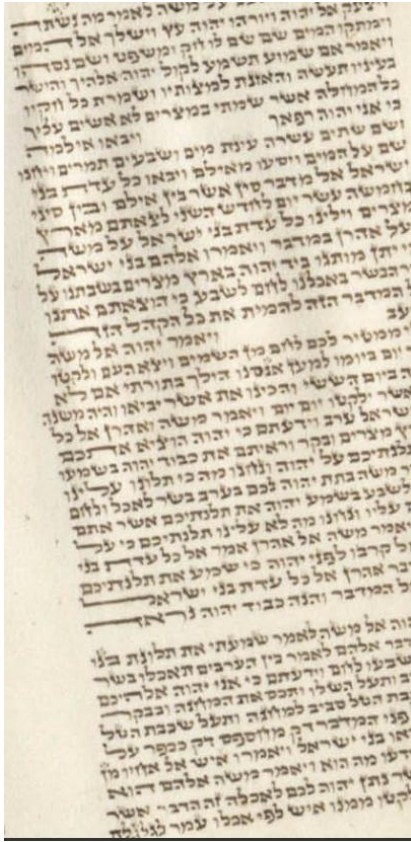 על משה לאמר מה נשתה
ויצעק אל יהוה ויורהו יהוה עץ וישלך אל המים
וימתקו המים שם שם לו חק ומשפט ושם נסהו
ויאמר אם שמוע תשמע לקול יהוה אלהיך והישר
בעיניו תעשה והאזנת למצותיו ושמרת כל חקיו
כל המחלה אשר שמתי במצרים לא אשים עליך
כי אני יהוה רפאך ויבאו אילמה
ושם שתים עשרה עינת מים ושבעים תמרים ויחנו
שם על המים ויסעו מאילם ויבאו כל עדת בני
ישראל אל מדבר סין אשר בין אילם ובין סיני
בחמשה עשר יום לחדש השני לצאתם מארץ
מצרים וילינו כל עדת בני ישראל על משה
על אהרן במדבר ויאמרו אלהם בני ישראל
יתן מותנו ביד יהוה בארץ מצרים בשבתנו על
הבשר באכלנו לחם לשבע כי הוצאתם אתנו
המדבר הזה להמית את כל הקהל הזה
עב ויאמר יהוה אל משה
ממטיר לכם לחם מן השמים ויצא העם ולקטו
יום ביומו למען אנסנו הילך בתורתי אם לא
ה ביום הששי והכינו את אשר יביאו והיה משנה
אשר ילקטו יום יום ויאמר משה ואהרן אל כל
ישראל ערב וידעתם כי יהוה הוציא אתכם
מצרים ובקר וראיתם את כבוד יהוה בשמעו
תלנתיכם על יהוה ונחנו מה כי תלונו עלינו
משה בתת יהוה לכם בערב בשר לאכל ולחם
לשבע בשמע יהוה את תלנתיכם אשר אתם
עליו ונחנו מה לא עלינו תלנתיכם כי על
יאמר משה אל אהרן אמר אל כל עדת בני
קרבו לפני יהוה כי שמע את תלנתיכם
דבר אהרן אל כל עדת בני ישראל
אל המדבר והנה כבוד יהוה נראה
יהוה אל משה לאמר שמעתי את תלונת בני
דבר אלהם לאמר בין הערבים תאכלו בשר
תשבעו לחם וידעתם כי אני יהוה אלהיכם
ותעל השלו ותכס את המחנה ובבקר
שכבת הטל סביב למחנה ותעל שכבת הטל
פני המדבר דק מחספס דק ככפר על
בני ישראל ויאמרו איש אל אחיו מן
ידעו מה הוא ויאמר משה אלהם הוא
אשר נתן יהוה לכם לאכלה זה הדבר אשר
לקטו ממנו איש לפי אכלו עמר לגלגלת